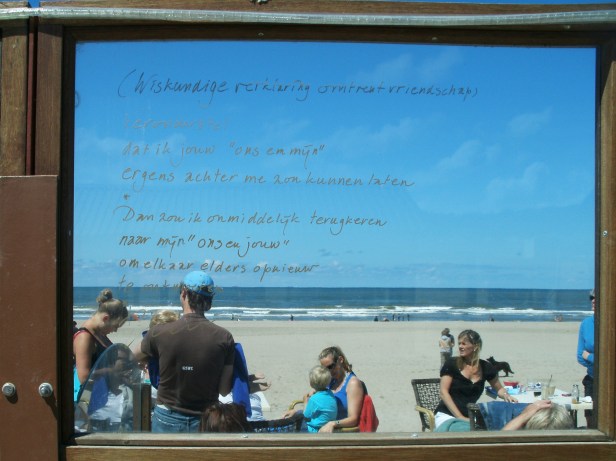 (Wiskundige verklaring omtrent vriendschap)
dat ik jouw "ons en mijn"
ergens achter me zou kunnen laten
Dan zou ik onmiddelijk terugkeren
naar mijn "ons en jouw"
om elkaar elders opnieuw
te